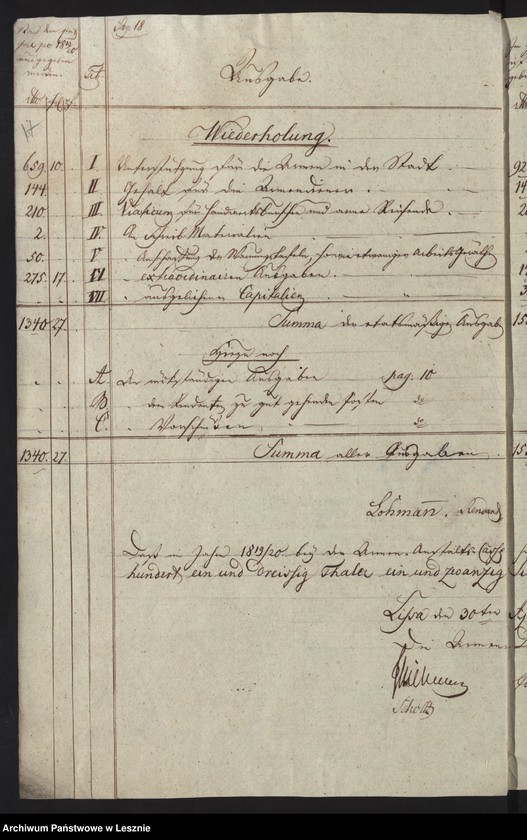 pag 18
1819/20
Tit.
Ausgabe.
Wiederholung.
659. 10. I Unterstützung für die Armen in der Stadt
144. II Gehalt für die Armendiener
210. III Viaticum für Handwerksbursche und arme Reisende.
2. IV An Schreib Materialien
50. V Anschaffung der Warnungstafeln, sowie etwaniger Arbeits Geräthe
275. 17. VI extraordinairen Ausgaben.
VII ausgeliehenen Capitalien
1340. 27. Summa der etatsmässigen Ausgabe
Hiezu noch
A. An rückständigen Ausgaben pag. 10
B. dem Rendanten zu gut gehende Posten do
C. Vorschüssen do
1340. 27. Summa aller Ausgaben.
Lohmann. Rendant
Dass im Jahre 1819/20. bei der Armen-Anstalts-Casse
hundert ein und dreissig Thaler ein und zwanzig
Lissa den 30ten
Die Armen
Scholtz
Archiwum Państwowe w Lesznie